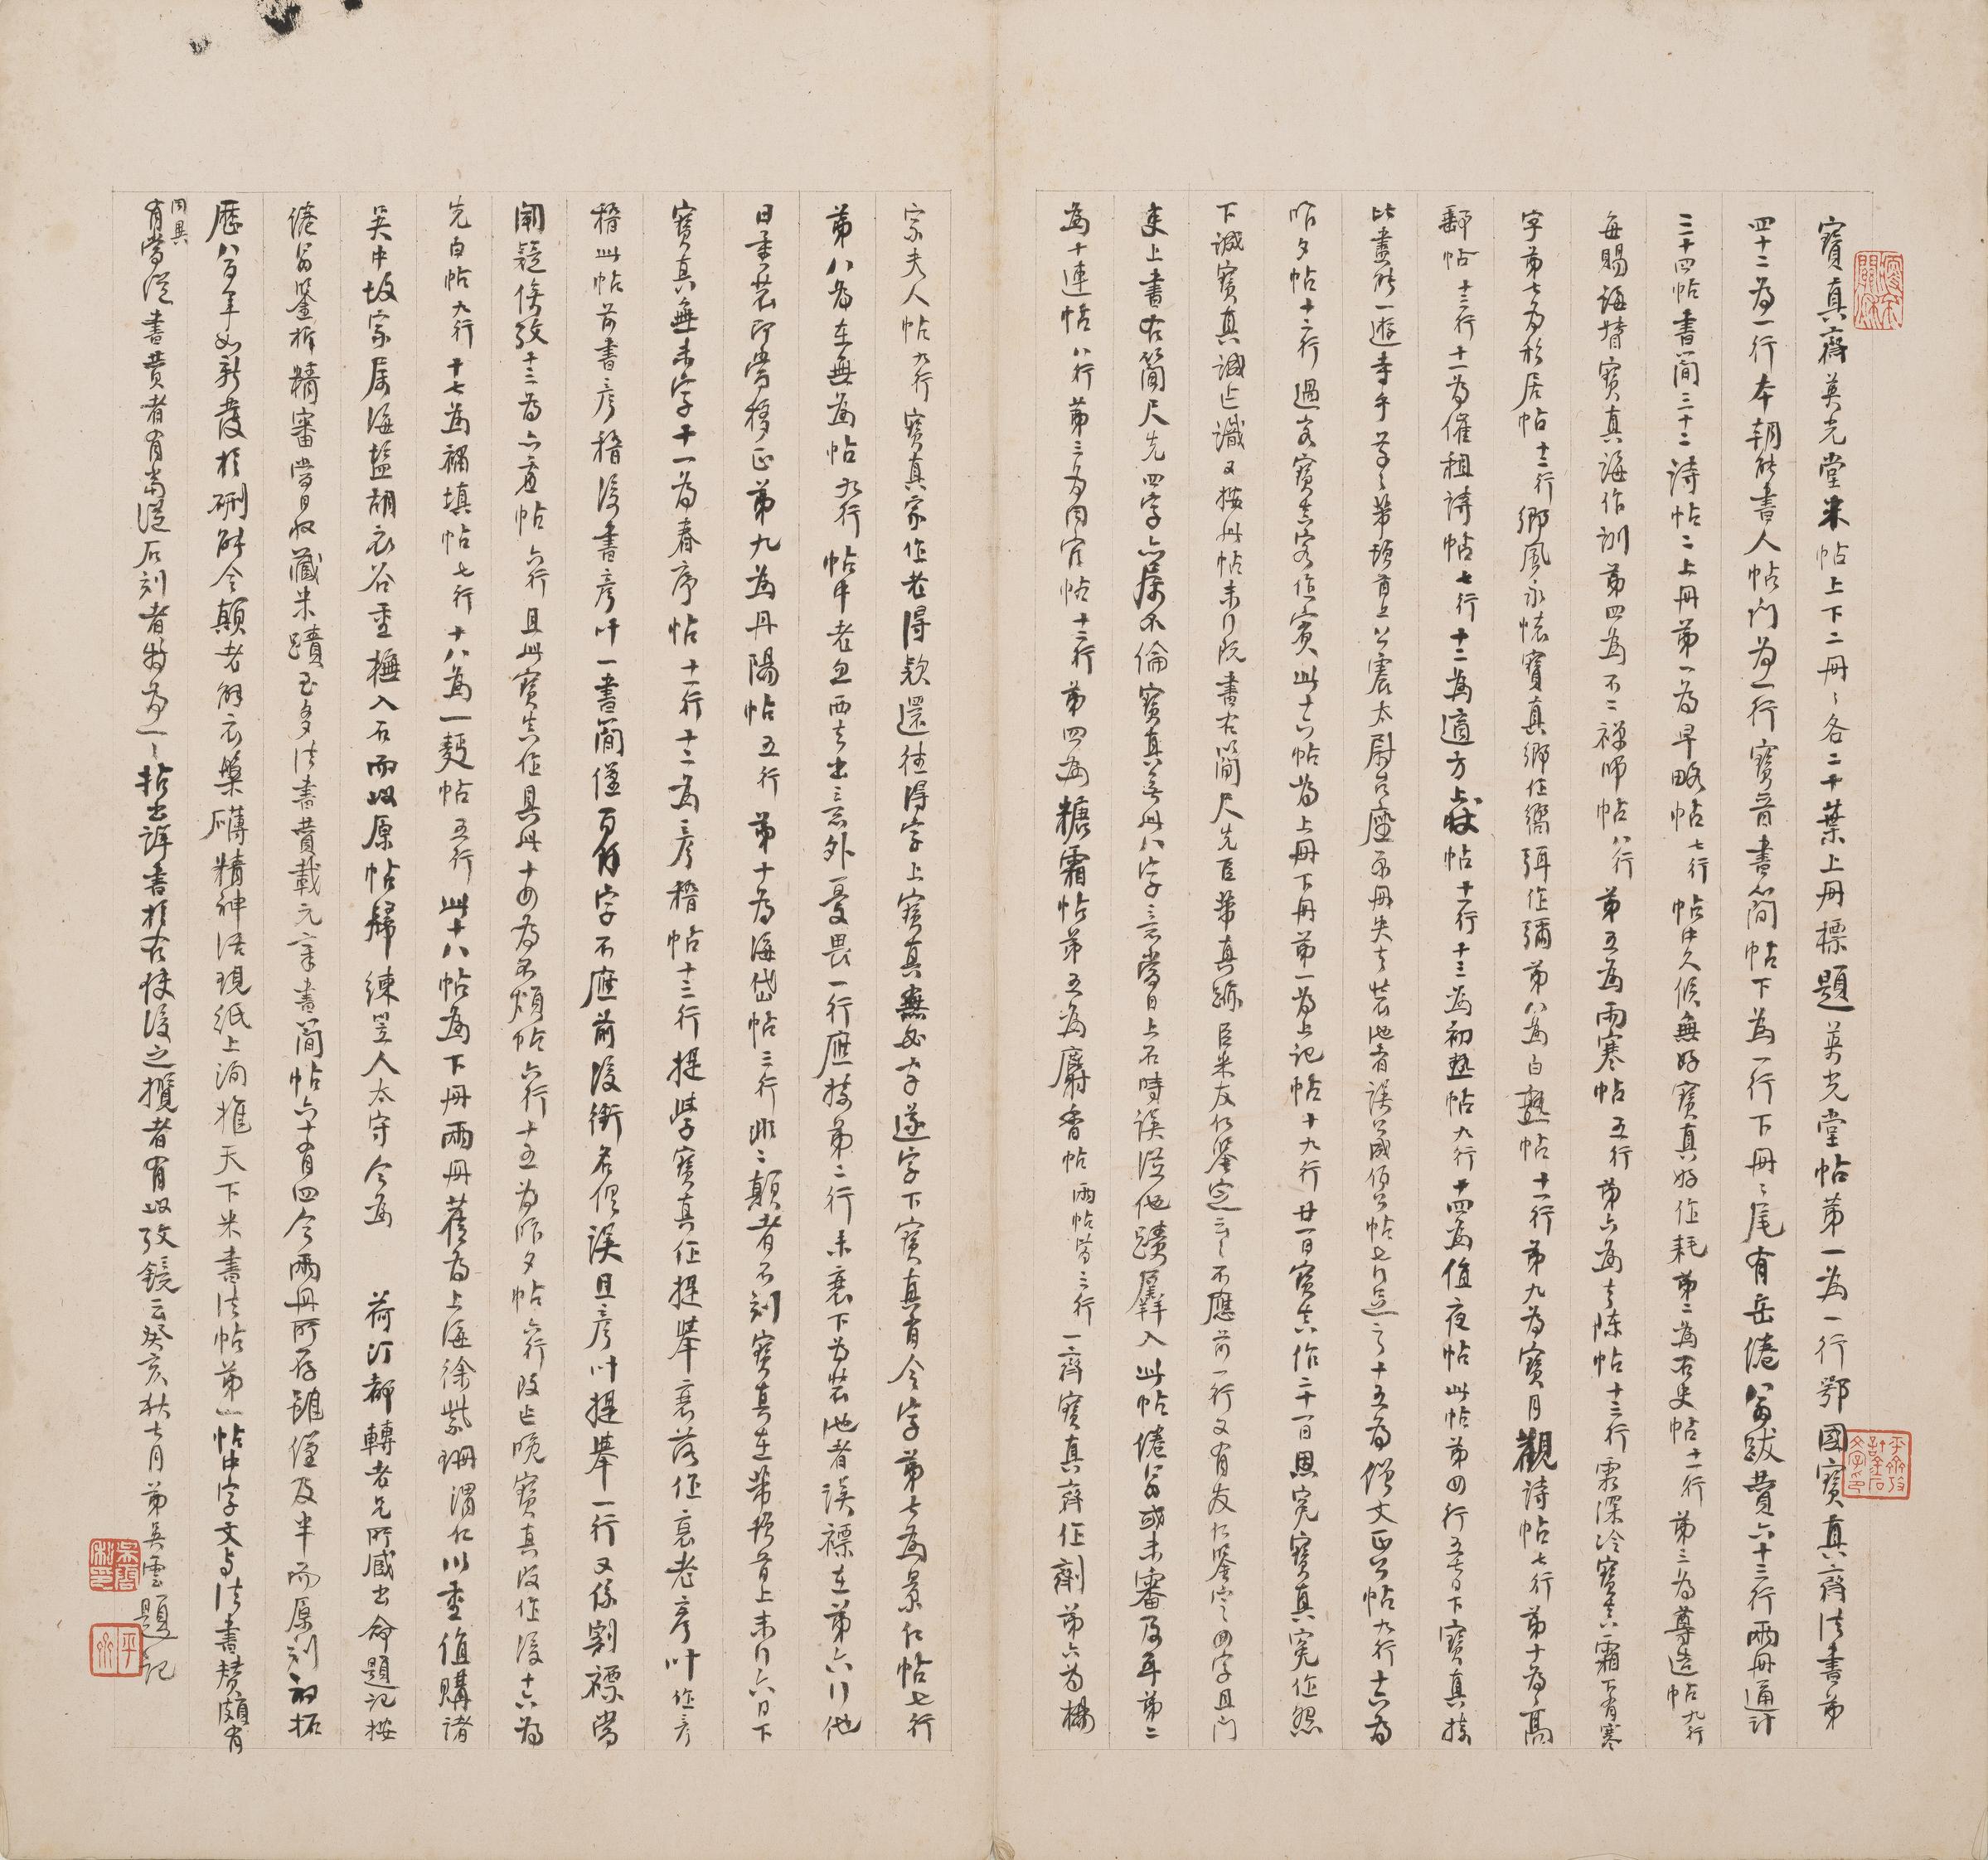 寶真齋英光堂米帖上下二冊〻各二十葉上冊標題英光堂帖第一為一行鄂國寶真齋法書第
四十二為一行本朝能書人帖門為一行寶晉書簡帖下為一行下冊〻尾有岳倦翁跋贊六十三行兩冊通計
三十四帖書簡三十二詩帖二上冊第一為早略帖七行帖中久候無好寶真好作耗第二為右史帖十一行第三為尊造帖九行
每賜誨督寶真誨作訓第四為不二禪師帖八行第五為雨寒帖五行第六為去陳帖十三行雪深冷寶真霜下有寒
字第七為移居帖十三行鄉風永懷寶真鄉作嚮弭作彌第八為白熟帖十一行第九為寶月觀詩帖七行第十為高
郵帖十三行十一為催租詩帖七行十二為適方帖十一行十三為初熱帖九行十四為值夜帖此帖第四行五日下寶真接
比盡能一遊幸乎芾頓首上公震太尉台座原冊失去裝池者誤 帖七行 之十五為僧文正公帖九行十六為
昨夕帖十六行過客寶真客作賓此十六帖為上冊下冊第一為上記帖十九行廿一日寶真作二十一日恩寃寶真寃作怨
下誠寶真誠作讖又按此帖末行既書右簡尺先臣芾真跡臣米友仁鑒定云〻不應前一行又有友仁鑒定四字且門
来上書右簡尺先四字亦屬不倫寶真無此八字意當日上石時誤從他蹟羼入此帖倦翁或未審及耳第二
為十連帖八行第三為內官帖十二行第四為糖霜帖第五為麝香帖兩帖皆三行一齊寶真齊作劑第六為楊
宗夫人帖九行寶真家作老得款還往得字上寶真無字遂字下寶真有今字第七為景仁帖七行
第八為在無為帖九行帖中老兄西去出意外憂畏一行應接第二行末裹下為裝池者誤裱在第六行他
日重裝即當移正第九為丹陽帖五行第十為海岱帖三行此二顛者不刻寶真在芾頓首上末行六日下
寶真無未字十一為春序帖十一行十二為彥稽帖十三行提學寶真作提舉衰落作衰老彥叶作彥
稽此帖前書彥稽後書彥叶一書簡僅百餘字不應前後銜名俱誤且彥叶提舉一行又係割裱當
闕疑俟攷十三為六壺帖六行且此寶真作具此十四為不煩帖六行十五為昨夕帖六行改作晚寶真改作後十六為
先白帖九行十七為補填帖七行十八為一麪帖五行此十八帖為下冊兩冊舊為上海徐紫珊渭仁以重值購諸
吳中故家屬海鹽胡衣谷重橅入石而以原帖歸練笠人太守今為　荷汀都轉老兄所藏出命題記按
倦翁鑒析精審當日收藏米蹟至多法書贊載元章書簡帖六十有四今兩冊所存雖僅及半而原刻初拓
歷八百年如新發於硎能令顛老解衣槃礴精神活現紙上洵推天下米書法帖第一帖中字文與法書贊頗有
同異
有當從書贊者有當從石刻者特為一〻拈出詳書於右俟後之攬者有以攷鏡云癸亥秋七月弟吳雲題記